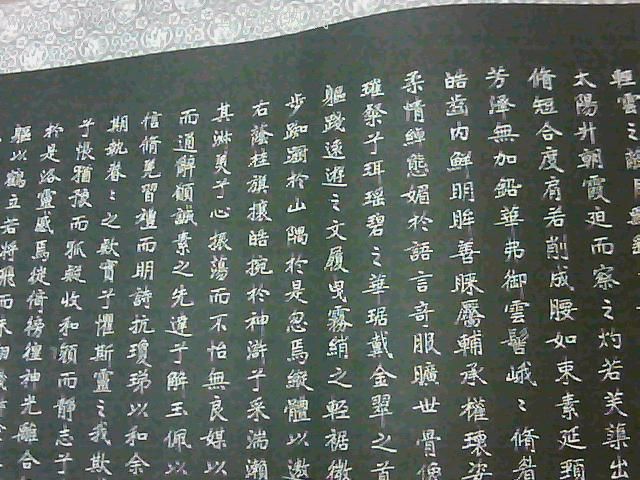 輕雲之蔽
太陽升朝霞迫而察之灼若芙蕖出
脩短合度肩若削成腰如束素延頸
芳澤無加鉛華弗御雲髻峨〻脩眉
皓齒內鮮明眸善睞靨輔承權瓌姿
柔情綽態媚於語言奇服曠世骨像
璀粲兮珥瑤碧之華琚戴金翠之首
軀踐遠遊之文履曳霧綃之輕裾微
步踟躕於山隅於是忽焉縱體以遨
右蔭桂旗攘皓捥於神滸兮采湍瀨
其淑美兮心振蕩而不怡無良媒以
而通辭願誠素之先達兮解玉佩以
信脩羌習禮而明詩抗瓊珶以和余
期執眷〻之款實兮懼斯靈之我欺
兮悵猶豫而狐疑收和顏而靜志兮
於是洛靈感焉徙倚徬徨神光離合
軀以鶴立若將飛而未翔